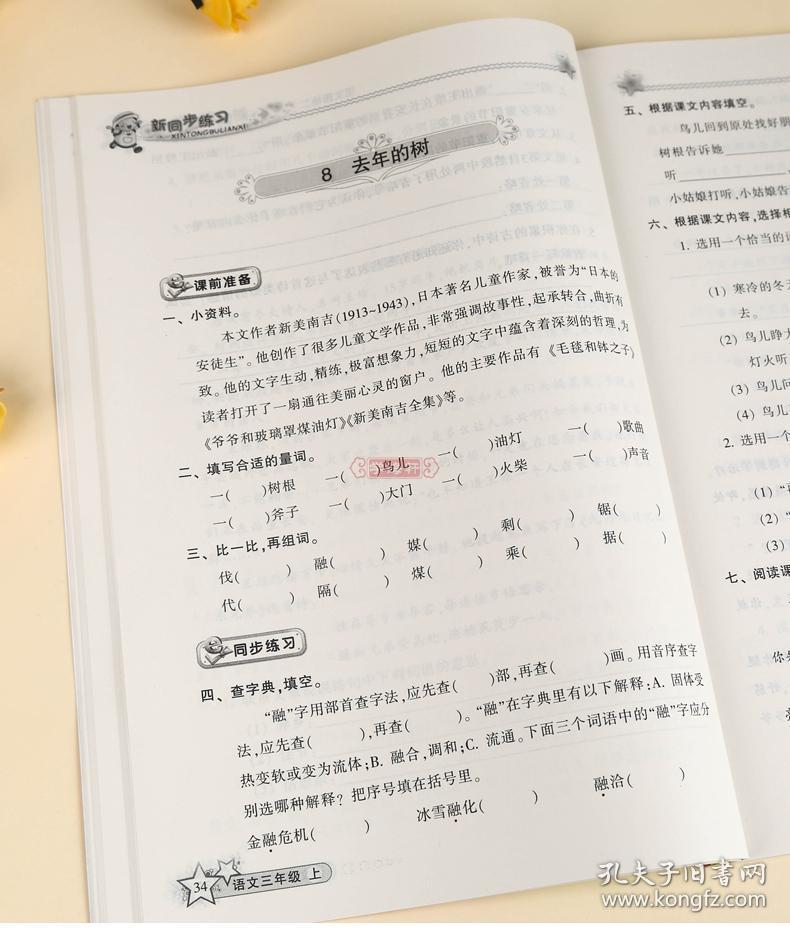 新同步练习
XINTONGBULIANXI
8 去年的树
课前准备
一、小资料。
本文作者新美南吉(1913~1943),日本著名儿童作家,被誉为“日本的
安徒生”。他创作了很多儿童文学作品,非常强调故事性,起承转合,曲折有
致。他的文字生动,精练,极富想象力,短短的文字中蕴含着深刻的哲理,为
读者打开了一扇通往美丽心灵的窗户。他的主要作品有《毛毯和钵之子》
《爷爷和玻璃罩煤油灯》《新美南吉全集》等。
二、填写合适的量词。
一( )树根 一( )鸟儿 一( )油灯 一( )歌曲
一( )斧子 一( )大门 一( )火柴 一( )声音
三、比一比,再组词。
伐( ) 融( ) 媒( ) 剩( ) 锯( )
代( ) 隔( ) 煤( ) 乘( ) 据( )
同步练习
四、查字典,填空。
“融”字用部首查字法,应先查( )部,再查( )画。用音序查字
法,应先查( ),再查( )。“融”在字典里有以下解释:A. 固体受
热变软或变为流体;B. 融合,调和;C. 流通。下面三个词语中的“融”字应分
别选哪种解释?把序号填在括号里。
金融危机( ) 冰雪融化( ) 融洽( )
34 语文三年级 上
五、根据课文内容填空。
鸟儿回到原处找好朋
树根告诉她
听
小姑娘打听,小姑娘告
六、根据课文内容,选择
1. 选用一个恰当的
(1) 寒冷的冬
去。
(2) 鸟儿睁大
灯火听
(3) 鸟儿
(4) 鸟儿
2. 选用一个
(1) “
(2) “
(3)
七、阅读课
你
孔夫子旧书网
www.kongfz.com